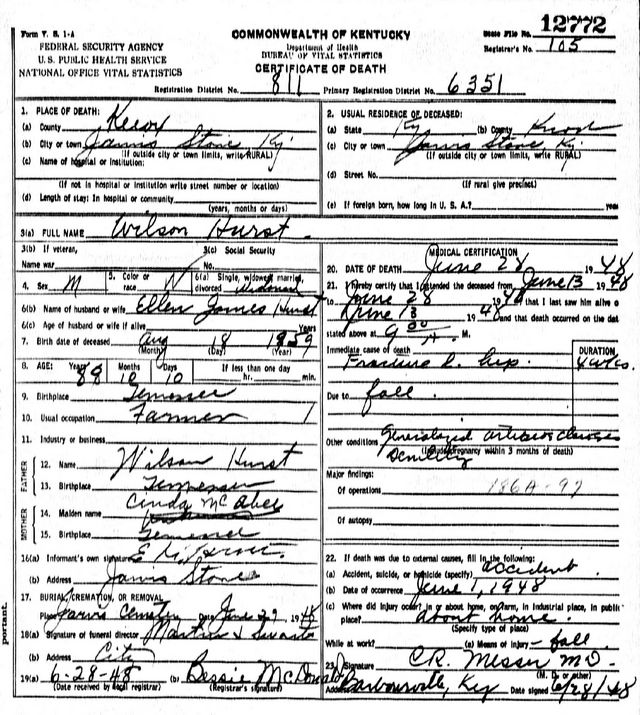 Form V. S. 1-A
FEDERAL SECURITY AGENCY
U. S. PUBLIC HEALTH SERVICE
NATIONAL OFFICE VITAL STATISTICS
COMMONWEALTH OF KENTUCKY
Department of Health
BUREAU OF VITAL STATISTICS
CERTIFICATE OF DEATH
State File No. 12772
Registrar's No. 105
Registration District No. 811 Primary Registration District No. 6351
1. PLACE OF DEATH:
(a) County Knox
(b) City or town Jarvis Store Ky.
(If outside city or town limits, write RURAL)
(c) Name of hospital or institution:
(If not in hospital or institution write street number or location)
(d) Length of stay: In hospital or community
(years, months or days)
2. USUAL RESIDENCE OF DECEASED:
(a) State Ky (b) County Knox
(c) City or town Jarvis Store Ky.
(If outside city or town limits, write RURAL)
(d) Street No.
(If rural give precinct)
(e) If foreign born, how long in U. S. A.? year
3(a) FULL NAME Wilson Hurst
3(b) If veteran,
Name war
3(c) Social Security
No.
4. Sex M
5. Color or race W
6(a) Single, widowed, married, divorced Widowed
6(b) Name of husband or wife Ellen James Hurst
6(c) Age of husband or wife if alive Years
7. Birth date of deceased Aug 18 1859
(Month) (Day) (Year)
8. AGE: Years 88 Months 10 Days 10 If less than one day hr. min.
9. Birthplace Tennessee
10. Usual occupation Farmer
11. Industry or business
FATHER
12. Name Wilson Hurst
13. Birthplace Tennessee
MOTHER
14. Maiden name Cinda McAbee
15. Birthplace Tennessee
16(a) Informant's own signature
(b) Address Jarvis Store
17. BURIAL, CREMATION, OR REMOVAL
Place Jarvis Cemetery Date June 29 1948
18(a) Signature of funeral director
(b) Address City
19(a) 6-28-48 (b) Bessie McDonald
(Date received by local registrar) (Registrar's signature)
MEDICAL CERTIFICATION
20. DATE OF DEATH June 28 1948
21. I hereby certify that I attended the deceased from June 13 1948
to June 28 1948 that I last saw him alive o
June 13 1948 and that death occurred on the dat
stated above at 9 00 A. M.
Immediate cause of death DURATION
Fracture R. hip 4 wks.
Due to fall
Other conditions Generalized arteriosclerosis
(Include pregnancy within 3 months of death)
Senility
Major findings:
Of operations 186A-97
Of autopsy
22. If death was due to external causes, fill in the following:
(a) Accident, suicide, or homicide (specify) accident
(b) Date of occurrence June 1, 1948
(c) Where did injury occur? in or about home, on farm, in industrial place, in public
place? about home
(Specify type of place)
While at work? (e) Means of injury fall
23. Signature C R. Messer MD.
(M. D. or other)
Address Barbourville, Ky Date signed 6/28/48
portant.